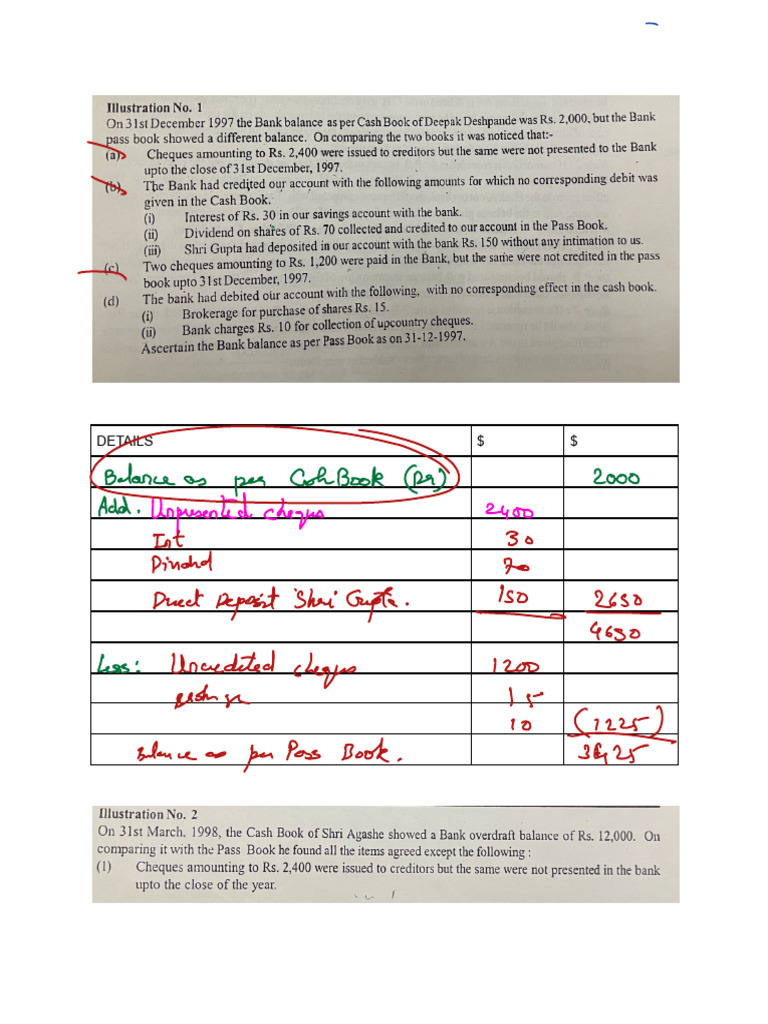 Illustration No. 1
On 31st December 1997 the Bank balance as per Cash Book of Deepak Deshpande was Rs. 2,000, but the Bank
pass book showed a different balance. On comparing the two books it was noticed that:-
(a) Cheques amounting to Rs. 2,400 were issued to creditors but the same were not presented to the Bank
upto the close of 31st December, 1997.
(b) The Bank had credited our account with the following amounts for which no corresponding debit was
given in the Cash Book.
(i) Interest of Rs. 30 in our savings account with the bank.
(ii) Dividend on shares of Rs. 70 collected and credited to our account in the Pass Book.
(iii) Shri Gupta had deposited in our account with the bank Rs. 150 without any intimation to us.
(c) Two cheques amounting to Rs. 1,200 were paid in the Bank, but the same were not credited in the pass
book upto 31st December, 1997.
(d) The bank had debited our account with the following, with no corresponding effect in the cash book.
(i) Brokerage for purchase of shares Rs. 15.
(ii) Bank charges Rs. 10 for collection of upcountry cheques.
Ascertain the Bank balance as per Pass Book as on 31-12-1997.
DETAILS $ $
Balance as per Cash Book (Dr) 2000
Add. Unpresented cheques 2400
Int 30
70
Direct Deposit 'Shri' Gupta. 150 2650
4650
Less: Uncredited cheques 1200
15
10 (1225)
Balance as per Pass Book. 3425
Illustration No. 2
On 31st March, 1998, the Cash Book of Shri Agashe showed a Bank overdraft balance of Rs. 12,000. On
comparing it with the Pass Book he found all the items agreed except the following :
(1) Cheques amounting to Rs. 2,400 were issued to creditors but the same were not presented in the bank
upto the close of the year.